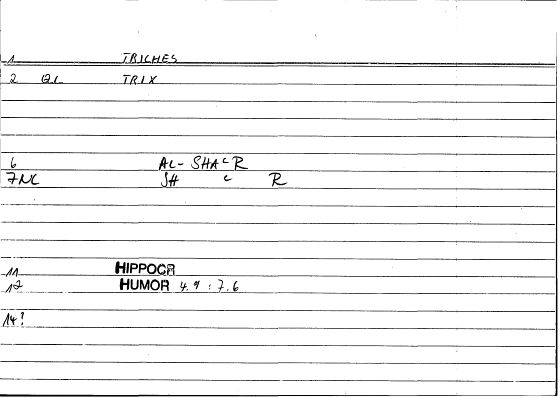 1 TRICHES
2 QL TRIX
6 AL- SHAᶜR
7NL SH ᶜ R
11 HIPPOCR
12 HUMOR 4.9 : 7.6
14?